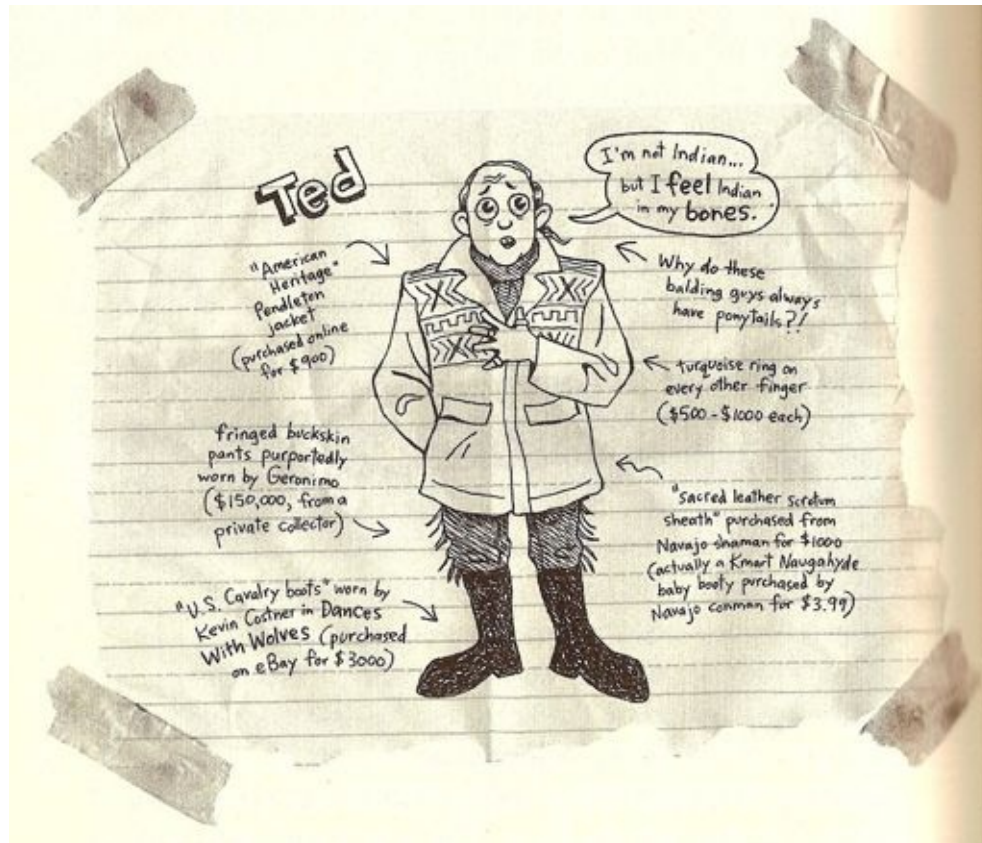 Ted
I'm not Indian...
but I feel Indian
in my bones.
"American
Heritage"
Pendleton
jacket
(purchased online
for $900)
Why do these
balding guys always
have ponytails?!
turquoise ring on
every other finger
($500 - $1000 each)
fringed buckskin
pants purportedly
worn by Geronimo
($150,000, from a
private collector)
"sacred leather scrotum
sheath" purchased from
Navajo shaman for $1000
(actually a Kmart Naugahyde
baby booty purchased by
Navajo conman for $3.99)
"U.S. Cavalry boots" worn by
Kevin Costner in Dances
With Wolves (purchased
on eBay for $3000)